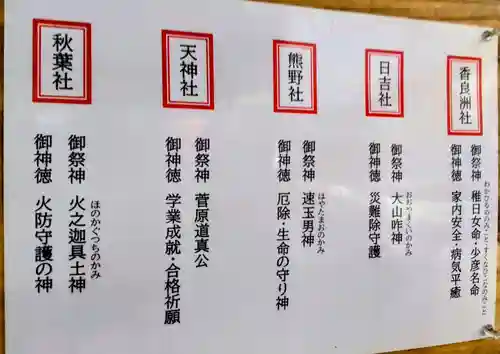 香良洲社
御祭神 稚日女命・少彦名命
わかひるめのみこと・すくなひこなのみこと
御神徳 家内安全・病気平癒
日吉社
御祭神 大山咋神
おおやまくいのかみ
御神徳 災難除守護
熊野社
御祭神 速玉男神
はやたまおのかみ
御神徳 厄除・生命の守り神
天神社
御祭神 菅原道真公
御神徳 学業成就・合格祈願
秋葉社
御祭神 火之迦具土神
ほのかぐつちのかみ
御神徳 火防守護の神